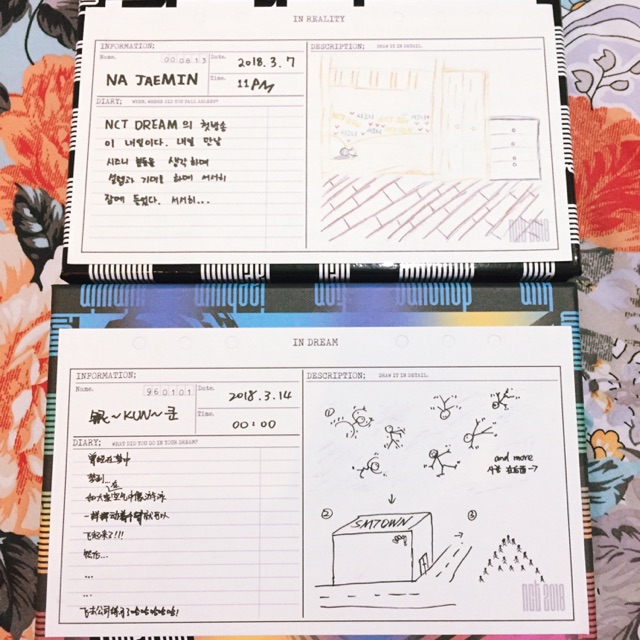 IN REALITY
INFORMATION;
Name.
000813
NA JAEMIN
Date.
2018.3.7
Time.
11PM
DIARY;
WHEN, WHERE DID YOU FALL ASLEEP?
NCT DREAM 의 첫방송
이 내일이다. 내일 만날
시즈니 분들을 생각하며
설렘과 기대를 하며 서서히
잠에 들었다. 서서히...
DESCRIPTION;
DRAW IT IN DETAIL.
nct 2018
IN DREAM
INFORMATION;
Name.
960101
锟~KUN~쿤
Date.
2018.3.14
Time.
00:00
DIARY;
WHAT DID YOU DO IN YOUR DREAM?
曾经在梦中
梦到...
在空气中像游泳
一样
飞起来了!!!
然后...
...
...
DESCRIPTION;
DRAW IT IN DETAIL.
①
and more
在后面→
②
SMTOWN
③
nct 2018